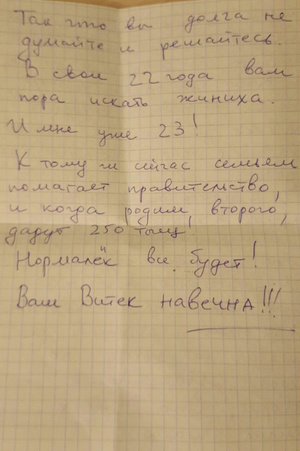 Так што вы долга не
думайте и решайтесь.
В свои 22 года вам
пора искать жиниха.
И мне уже 23!
К тому ж сичас семьям
помагает правительство,
и когда родим второго,
дадут 250 тыщ!
Нормалёк все будет!
Ваш Витек навечна!!!